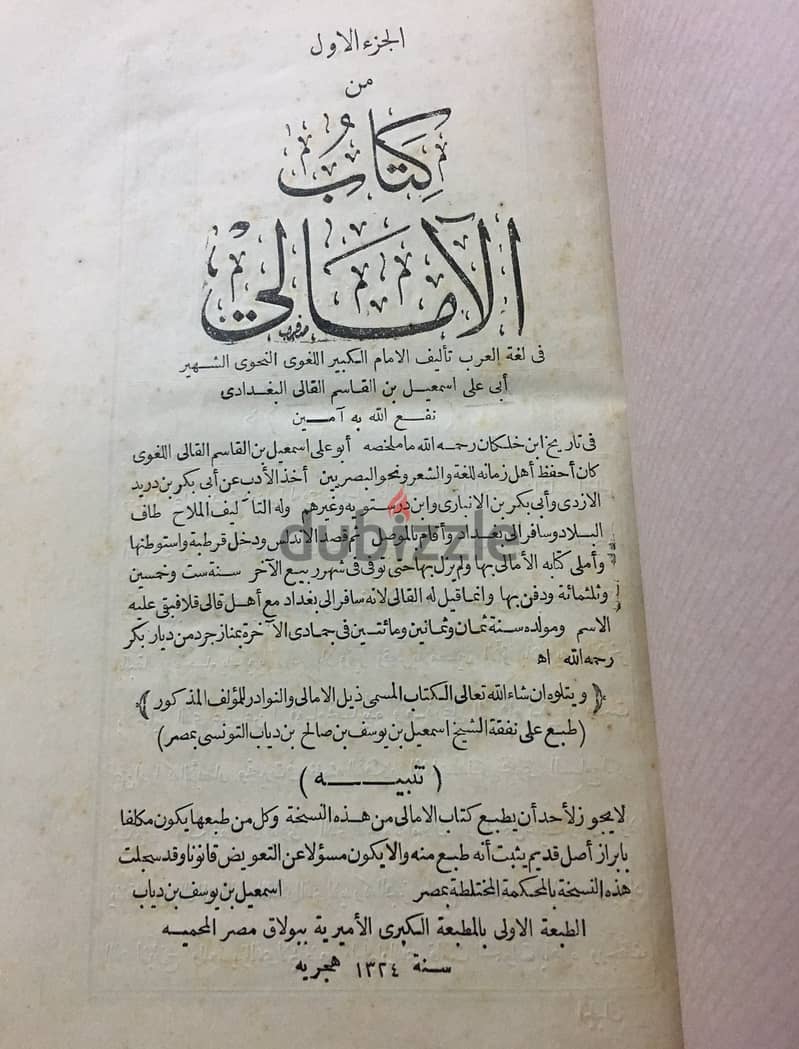 الجزء الاول
من
كِتَابُ
الأمَالِيْ
فى لغة العرب تأليف الامام الكبير اللغوى النحوى الشهير
أبى على اسمعيل بن القاسم القالى البغدادى
نفع الله به آمين
فى تاريخ ابن خلكان رحمه الله ما ملخصه أبو على اسمعيل بن القاسم القالى اللغوى
كان أحفظ أهل زمانه للغة والشعر ونحو البصريين أخذ الأدب عن أبى بكر بن دريد
الازدى وأبى بكر بن الانبارى وابن درستويه وغيرهم وله التآليف الملاح طاف
البلاد وسافر الى بغداد وأقام بالموصل ثم قصد الأندلس ودخل قرطبة واستوطنها
وأملى كتابه الأمالى بها ولم يزل بها حتى توفى فى شهر ربيع الآخر سنة ست وخمسين
وثلثمائة ودفن بها وانما قيل له القالى لانه سافر الى بغداد مع أهل قالى قلا فبقى عليه
الاسم ومولده سنة ثمان وثمانين ومائتين فى جمادى الآخرة بمنازجرد من ديار بكر
رحمه الله اه
﴿ ويتلوه ان شاء الله تعالى الكتاب المسمى ذيل الامالى والنوادر للمؤلف المذكور ﴾
(طبع على نفقة الشيخ اسمعيل بن يوسف بن صالح بن دياب التونسى بمصر)
(تنبيه)
لا يجوز لأحد أن يطبع كتاب الامالى من هذه النسخة وكل من طبعها يكون مكلفا
بابراز أصل قديم يثبت أنه طبع منه والا يكون مسؤلا عن التعويض قانونا وقد سجلت
هذه النسخة بالمحكمة المختلطة بمصر اسمعيل بن يوسف بن دياب
الطبعة الاولى بالمطبعة الكبرى الأميرية ببولاق مصر المحميه
سنة ١٣٢٤ هجريه
dubizzle